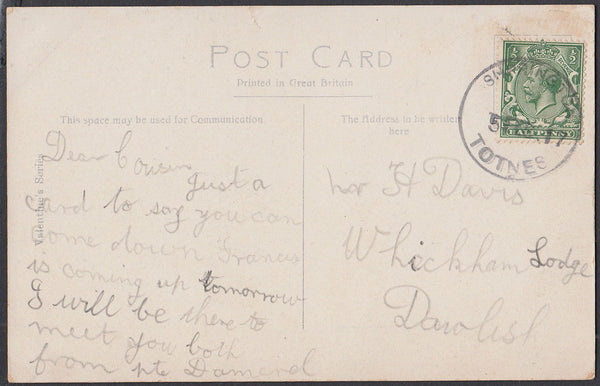 POST CARD
Printed in Great Britain
This space may be used for Communication.
The Address to be written
here
Valentine's Series
Dear Cousin
Just a
card to say you can
come down Francis
is coming up tomorrow
I will be there to
meet you both
from pte Damerel
Mr H Davis
Whickham Lodge
Dawlish
½ ½
HALFPENNY
TOTNES